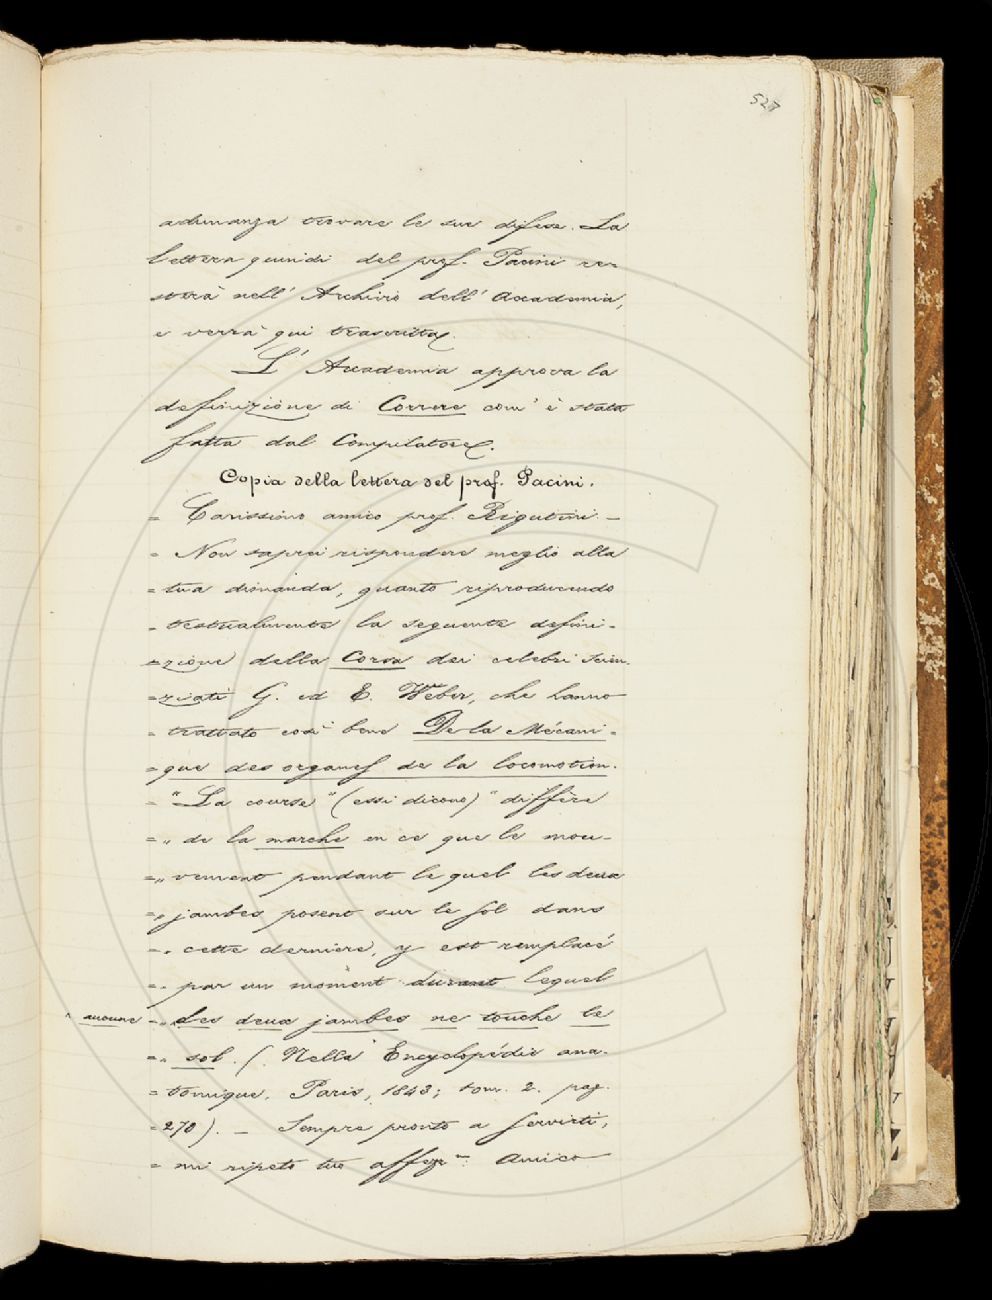 527
adunanza trovare le sue difese. La
lettera quindi del prof. Pacini re-
sterà nell' Archivio dell' Accademia,
e verrà qui trascritta.
L' Accademia approva la
definizione di Correre com' è stata
fatta dal Compilatore.
Copia della lettera del prof. Pacini.
= Carissimo amico prof. Rigutini. –
= Non saprei rispondere meglio alla
= tua dimanda, quanto riproducendo
= testualmente la seguente defini-
= zione della Corsa dei celebri scien-
= ziati G. ed E. Weber, che hanno
= trattato così bene De la Mécani-
= que des organes de la locomotion.
= "La course" (essi dicono) "diffère
= „ de la marche en ce que le mou-
= „ vement pendant lequel les deux
= „ jambes posent sur le sol dans
= „ cette derniere, y est remplacé
= „ par un moment durant lequel
" aucune = „ des deux jambes ne touche le
= „ sol. (Nella Encyclopédie ana-
= tomique. Paris, 1843; tom. 2. pag.
= 270). – Sempre pronto a servirti,
= mi ripeto tuo affezmo: Amico